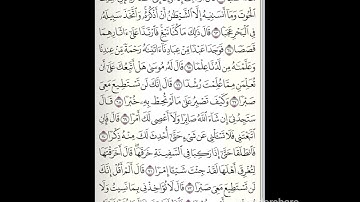 ٱلْحُوتَ وَمَآ أَنسَىٰنِيهُ إِلَّا ٱلشَّيْطَٰنُ أَنْ أَذْكُرَهُۥ وَٱتَّخَذَ سَبِيلَهُۥ
فِى ٱلْبَحْرِ عَجَبًا ۝٦٣ قَالَ ذَٰلِكَ مَا كُنَّا نَبْغِ فَٱرْتَدَّا عَلَىٰٓ ءَاثَارِهِمَا
قَصَصًا ۝٦٤ فَوَجَدَا عَبْدًا مِّنْ عِبَادِنَآ ءَاتَيْنَٰهُ رَحْمَةً مِّنْ عِندِنَا
وَعَلَّمْنَٰهُ مِن لَّدُنَّا عِلْمًا ۝٦٥ قَالَ لَهُۥ مُوسَىٰ هَلْ أَتَّبِعُكَ عَلَىٰٓ أَن
تُعَلِّمَنِ مِمَّا عُلِّمْتَ رُشْدًا ۝٦٦ قَالَ إِنَّكَ لَن تَسْتَطِيعَ مَعِىَ
صَبْرًا ۝٦٧ وَكَيْفَ تَصْبِرُ عَلَىٰ مَا لَمْ تُحِطْ بِهِۦ خُبْرًا ۝٦٨ قَالَ
سَتَجِدُنِىٓ إِن شَآءَ ٱللَّهُ صَابِرًا وَلَآ أَعْصِى لَكَ أَمْرًا ۝٦٩ قَالَ فَإِنِ
ٱتَّبَعْتَنِى فَلَا تَسْـَٔلْنِى عَن شَىْءٍ حَتَّىٰٓ أُحْدِثَ لَكَ مِنْهُ ذِكْرًا ۝٧٠
فَٱنطَلَقَا حَتَّىٰٓ إِذَا رَكِبَا فِى ٱلسَّفِينَةِ خَرَقَهَا قَالَ أَخَرَقْتَهَا
لِتُغْرِقَ أَهْلَهَا لَقَدْ جِئْتَ شَيْـًٔا إِمْرًا ۝٧١ قَالَ أَلَمْ أَقُلْ إِنَّكَ
لَن تَسْتَطِيعَ مَعِىَ صَبْرًا ۝٧٢ قَالَ لَا تُؤَاخِذْنِى بِمَا نَسِيتُ وَلَا